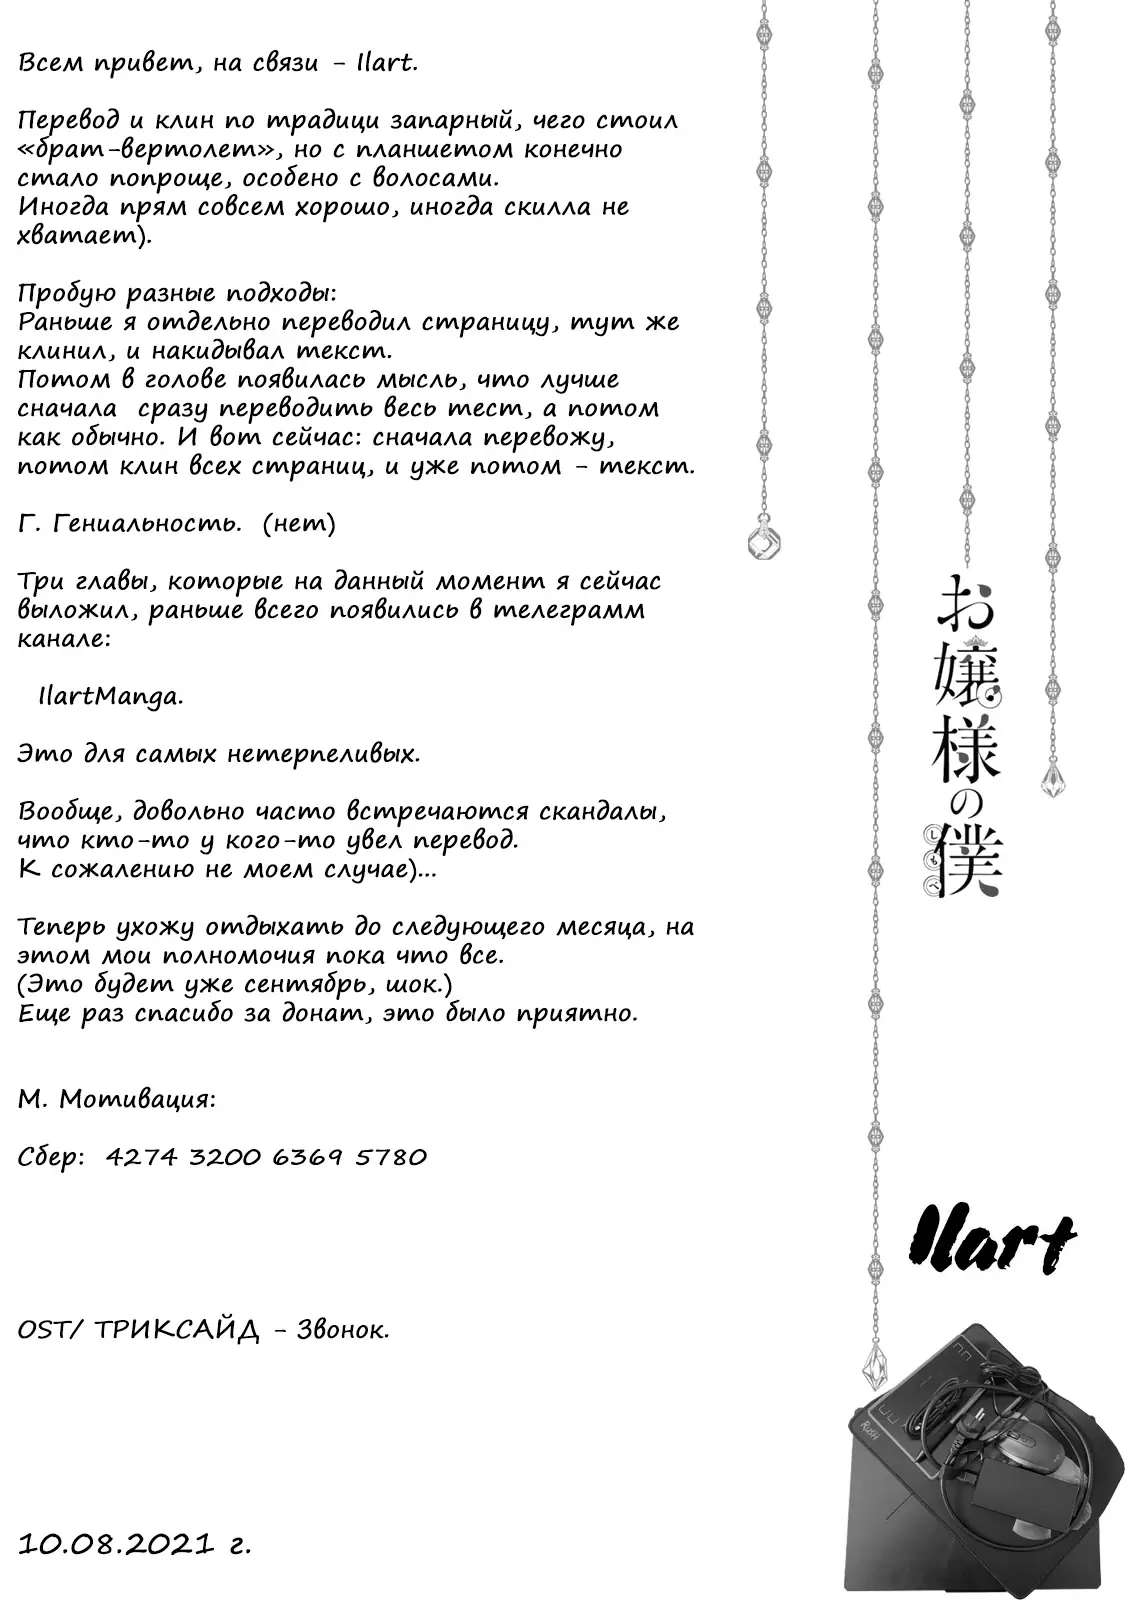 Всем привет, на связи - Ilart.
Перевод и клин по традици запарный, чего стоил
«брат-вертолет», но с планшетом конечно
стало попроще, особено с волосами.
Иногда прям совсем хорошо, иногда скилла не
хватает).
Пробую разные подходы:
Раньше я отдельно переводил страницу, тут же
клинил, и накидывал текст.
Потом в голове появилась мысль, что лучше
сначала  сразу переводить весь тест, а потом
как обычно. И вот сейчас: сначала перевожу,
потом клин всех страниц, и уже потом - текст.
Г. Гениальность.  (нет)
Три главы, которые на данный момент я сейчас
выложил, раньше всего появились в телеграмм
канале:
IlartManga.
Это для самых нетерпеливых.
Вообще, довольно часто встречаются скандалы,
что кто-то у кого-то увел перевод.
К сожалению не моем случае)...
Теперь ухожу отдыхать до следующего месяца, на
этом мои полномочия пока что все.
(Это будет уже сентябрь, шок.)
Еще раз спасибо за донат, это было приятно.
М. Мотивация:
Сбер:  4274 3200 6369 5780
OST/ ТРИКСАЙД - Звонок.
10.08.2021 г.
お嬢様の僕
しもべ
Ilart
RUSH